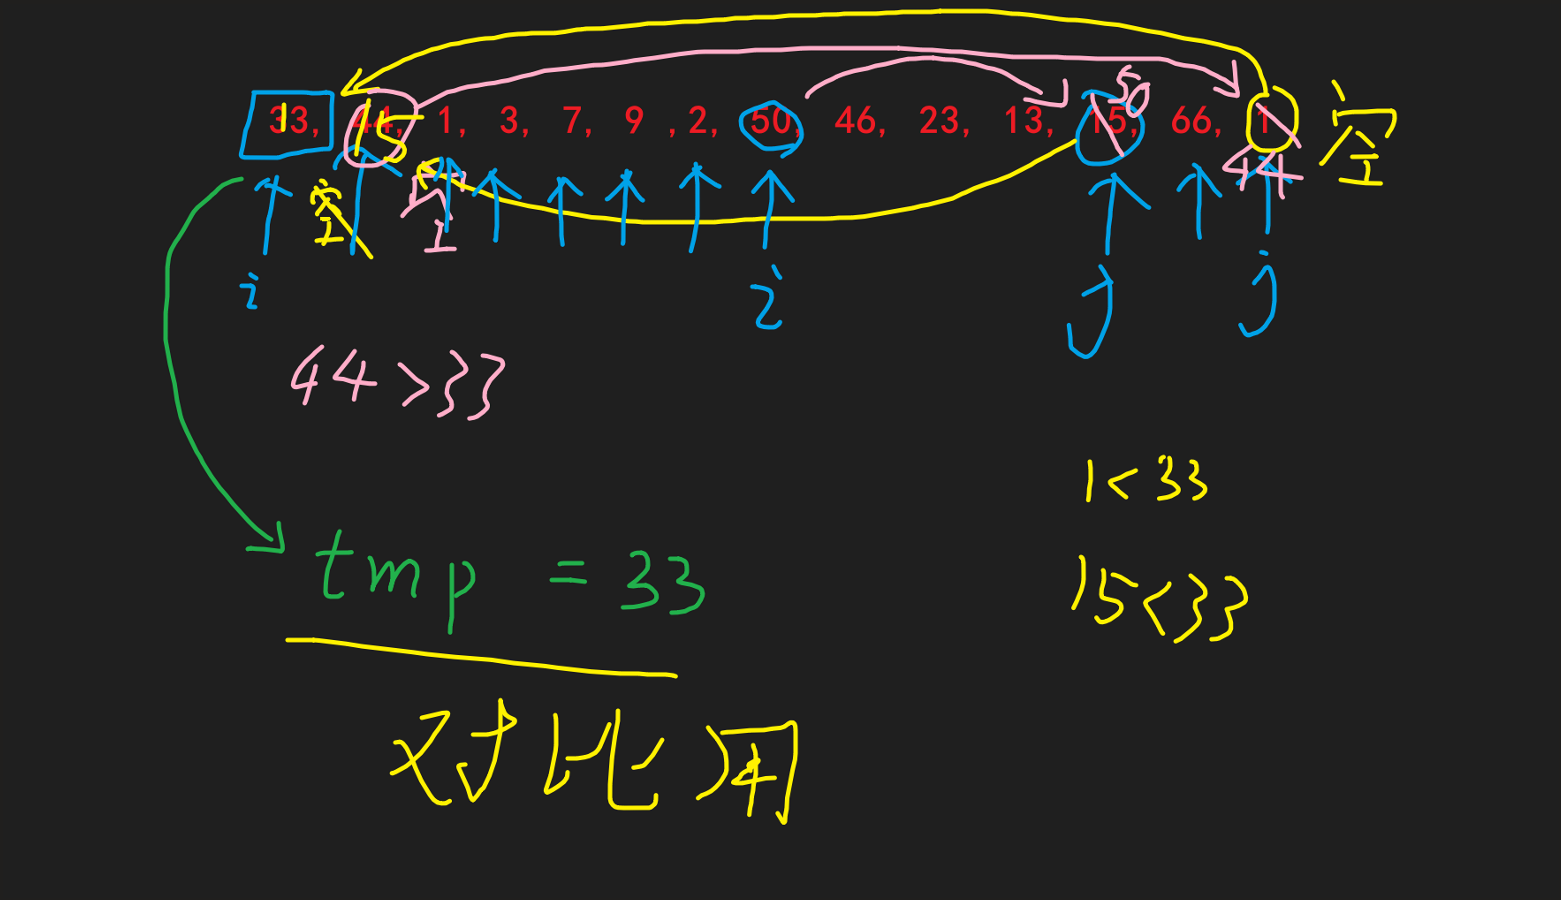 50
33, 44, 1, 3, 7, 9 ,2, 50, 46, 23, 13, 15, 66, 1
1 15 空
空 空 44
i i j j
44>33
1<33
15<33
tmp = 33
对比用